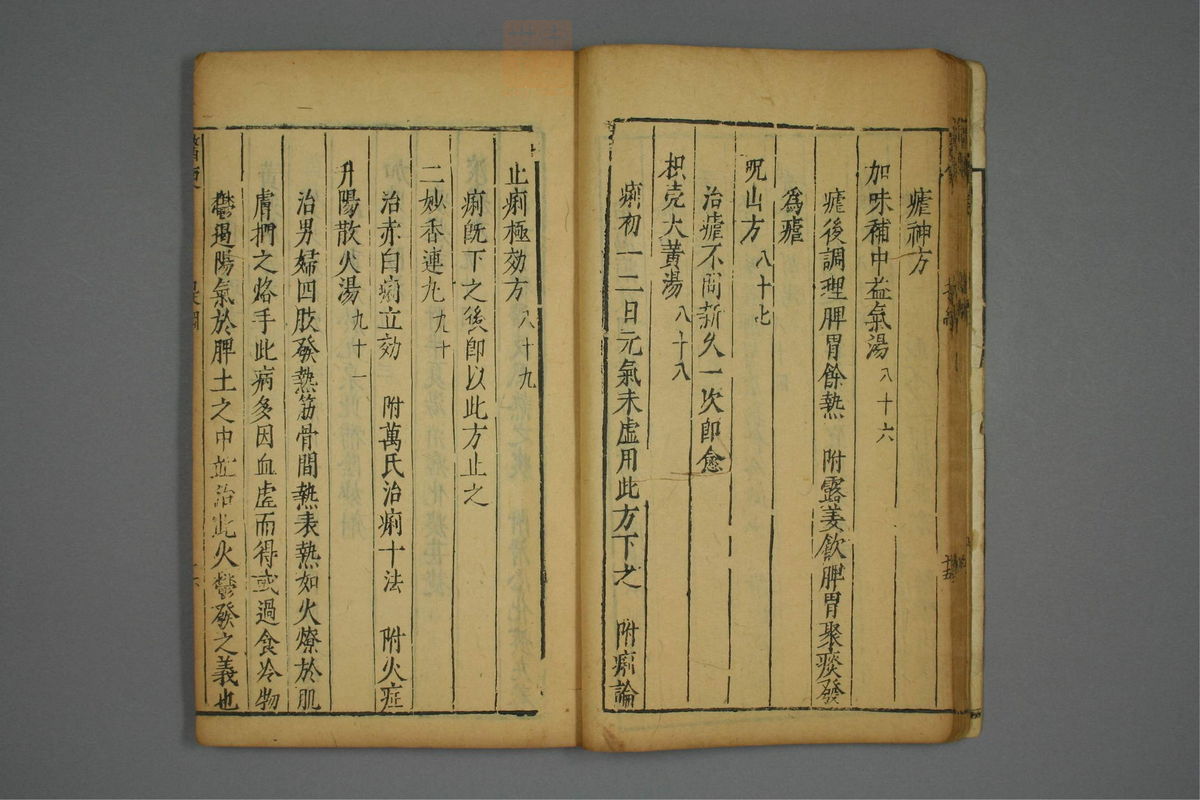 瘧神方
加味補中益氣湯 八十六
瘧後調理脾胃餘熱 附露姜飲脾胃聚痰發
為瘧
咒山方 八十七
治瘧不問新久一次即愈
枳壳大黃湯 八十八
痢初一二日元氣未虛用此方下之 附痢論
止痢極効方 八十九
痢既下之後即以此方止之
二妙香連丸 九十
治赤白痢立効 附萬氏治痢十法 附火症
升陽散火湯 九十一
治男婦四肢發熱筋骨間熱表熱如火燎於肌
膚捫之烙手此病多因血虛而得或過食冷物
鬱遏陽氣於脾土之中並治此火鬱發之義也